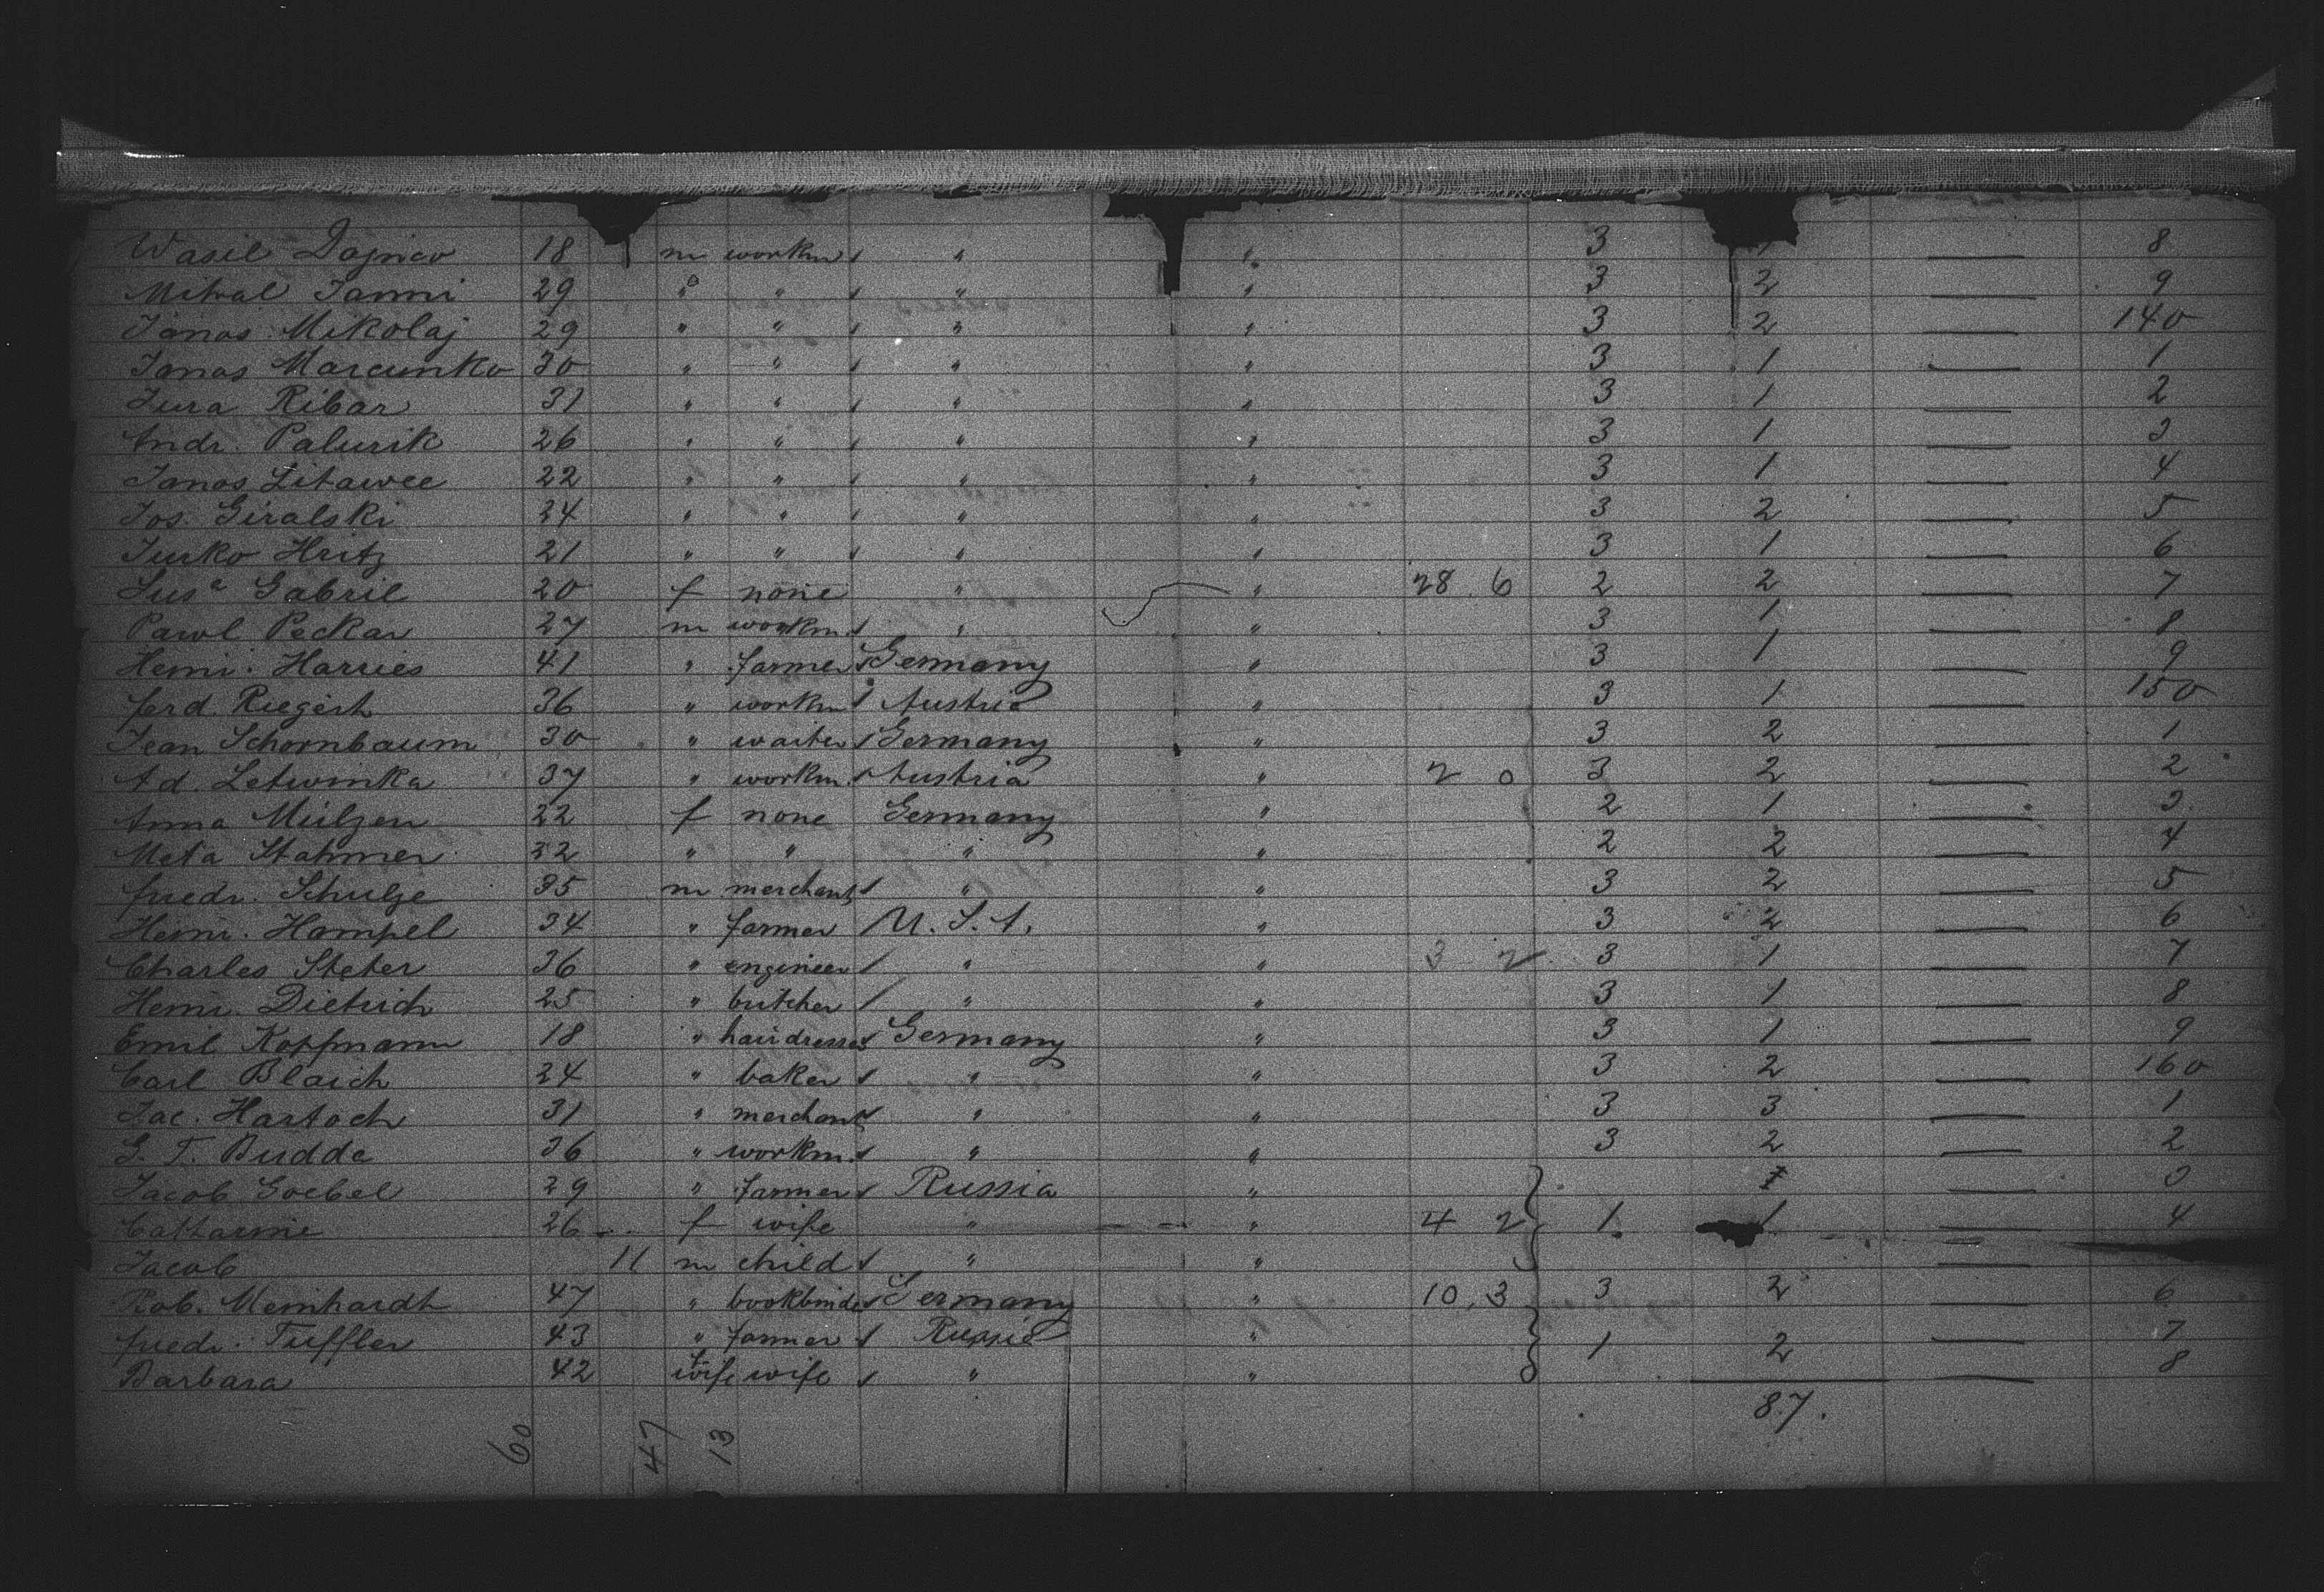 Wasil Dajnico 18 m workm " " 3 8
Mihal Janni 29 " " " " 3 2 — 9
Janos Mikolaj 29 " " " " 3 2 — 140
Janos Marcunko 30 " " " " 3 1 — 1
Jura Ribar 31 " " " " 3 1 — 2
Andr. Palurik 26 " " " " 3 1 — 3
Janos Litawee 22 " " " " 3 1 — 4
Jos. Giralski 24 " " " " 3 2 — 5
Jurko Hritz 21 " " " " 3 1 — 6
Susa Gabril 20 f none " " 28. 6 2 2 — 7
Pawl Peckar 27 m workm. " " 3 1 — 8
Heinr. Harries 41 " farmer Germany " 3 1 — 9
Ferd. Riegert 36 " workm Austria " 3 1 — 150
Jean Schornbaum 30 " waiter Germany " 3 2 — 1
Ad. Letwinka 37 " workm. Austria " 2 0 3 2 — 2
Anna 22 f none Germany " 2 1 — 3
Meta Stahmer 22 " " " " 2 2 — 4
Friedr. Schulze 35 m merchant " " 3 2 — 5
Heinr. Hampel 34 " farmer U. S. A. " 3 2 — 6
Charles Steter 36 " engineer " " 3 2 3 1 — 7
Heinr. Dietrich 25 " butcher " " 3 1 — 8
Emil Koppmann 18 " hairdresser Germany " 3 1 — 9
Carl Blaich 24 " baker " " 3 2 — 160
Jac. Hartoch 31 " merchant " " 3 3 — 1
G. T. Budde 36 " workm. " " 3 2 — 2
Jacob Goebel 29 " farmer Russia " — 3
Catharine 26 f wife " " 4 2 1 1 — 4
Jacob 11 m child " "
Rob. Meinhardt 47 " bookbinder Germany " 10. 3 3 2 — 6
Friedr. Tuffler 43 " farmer Russia " 1 2 — 7
Barbara 42 wife wife " " — 8
87.
60 47 13